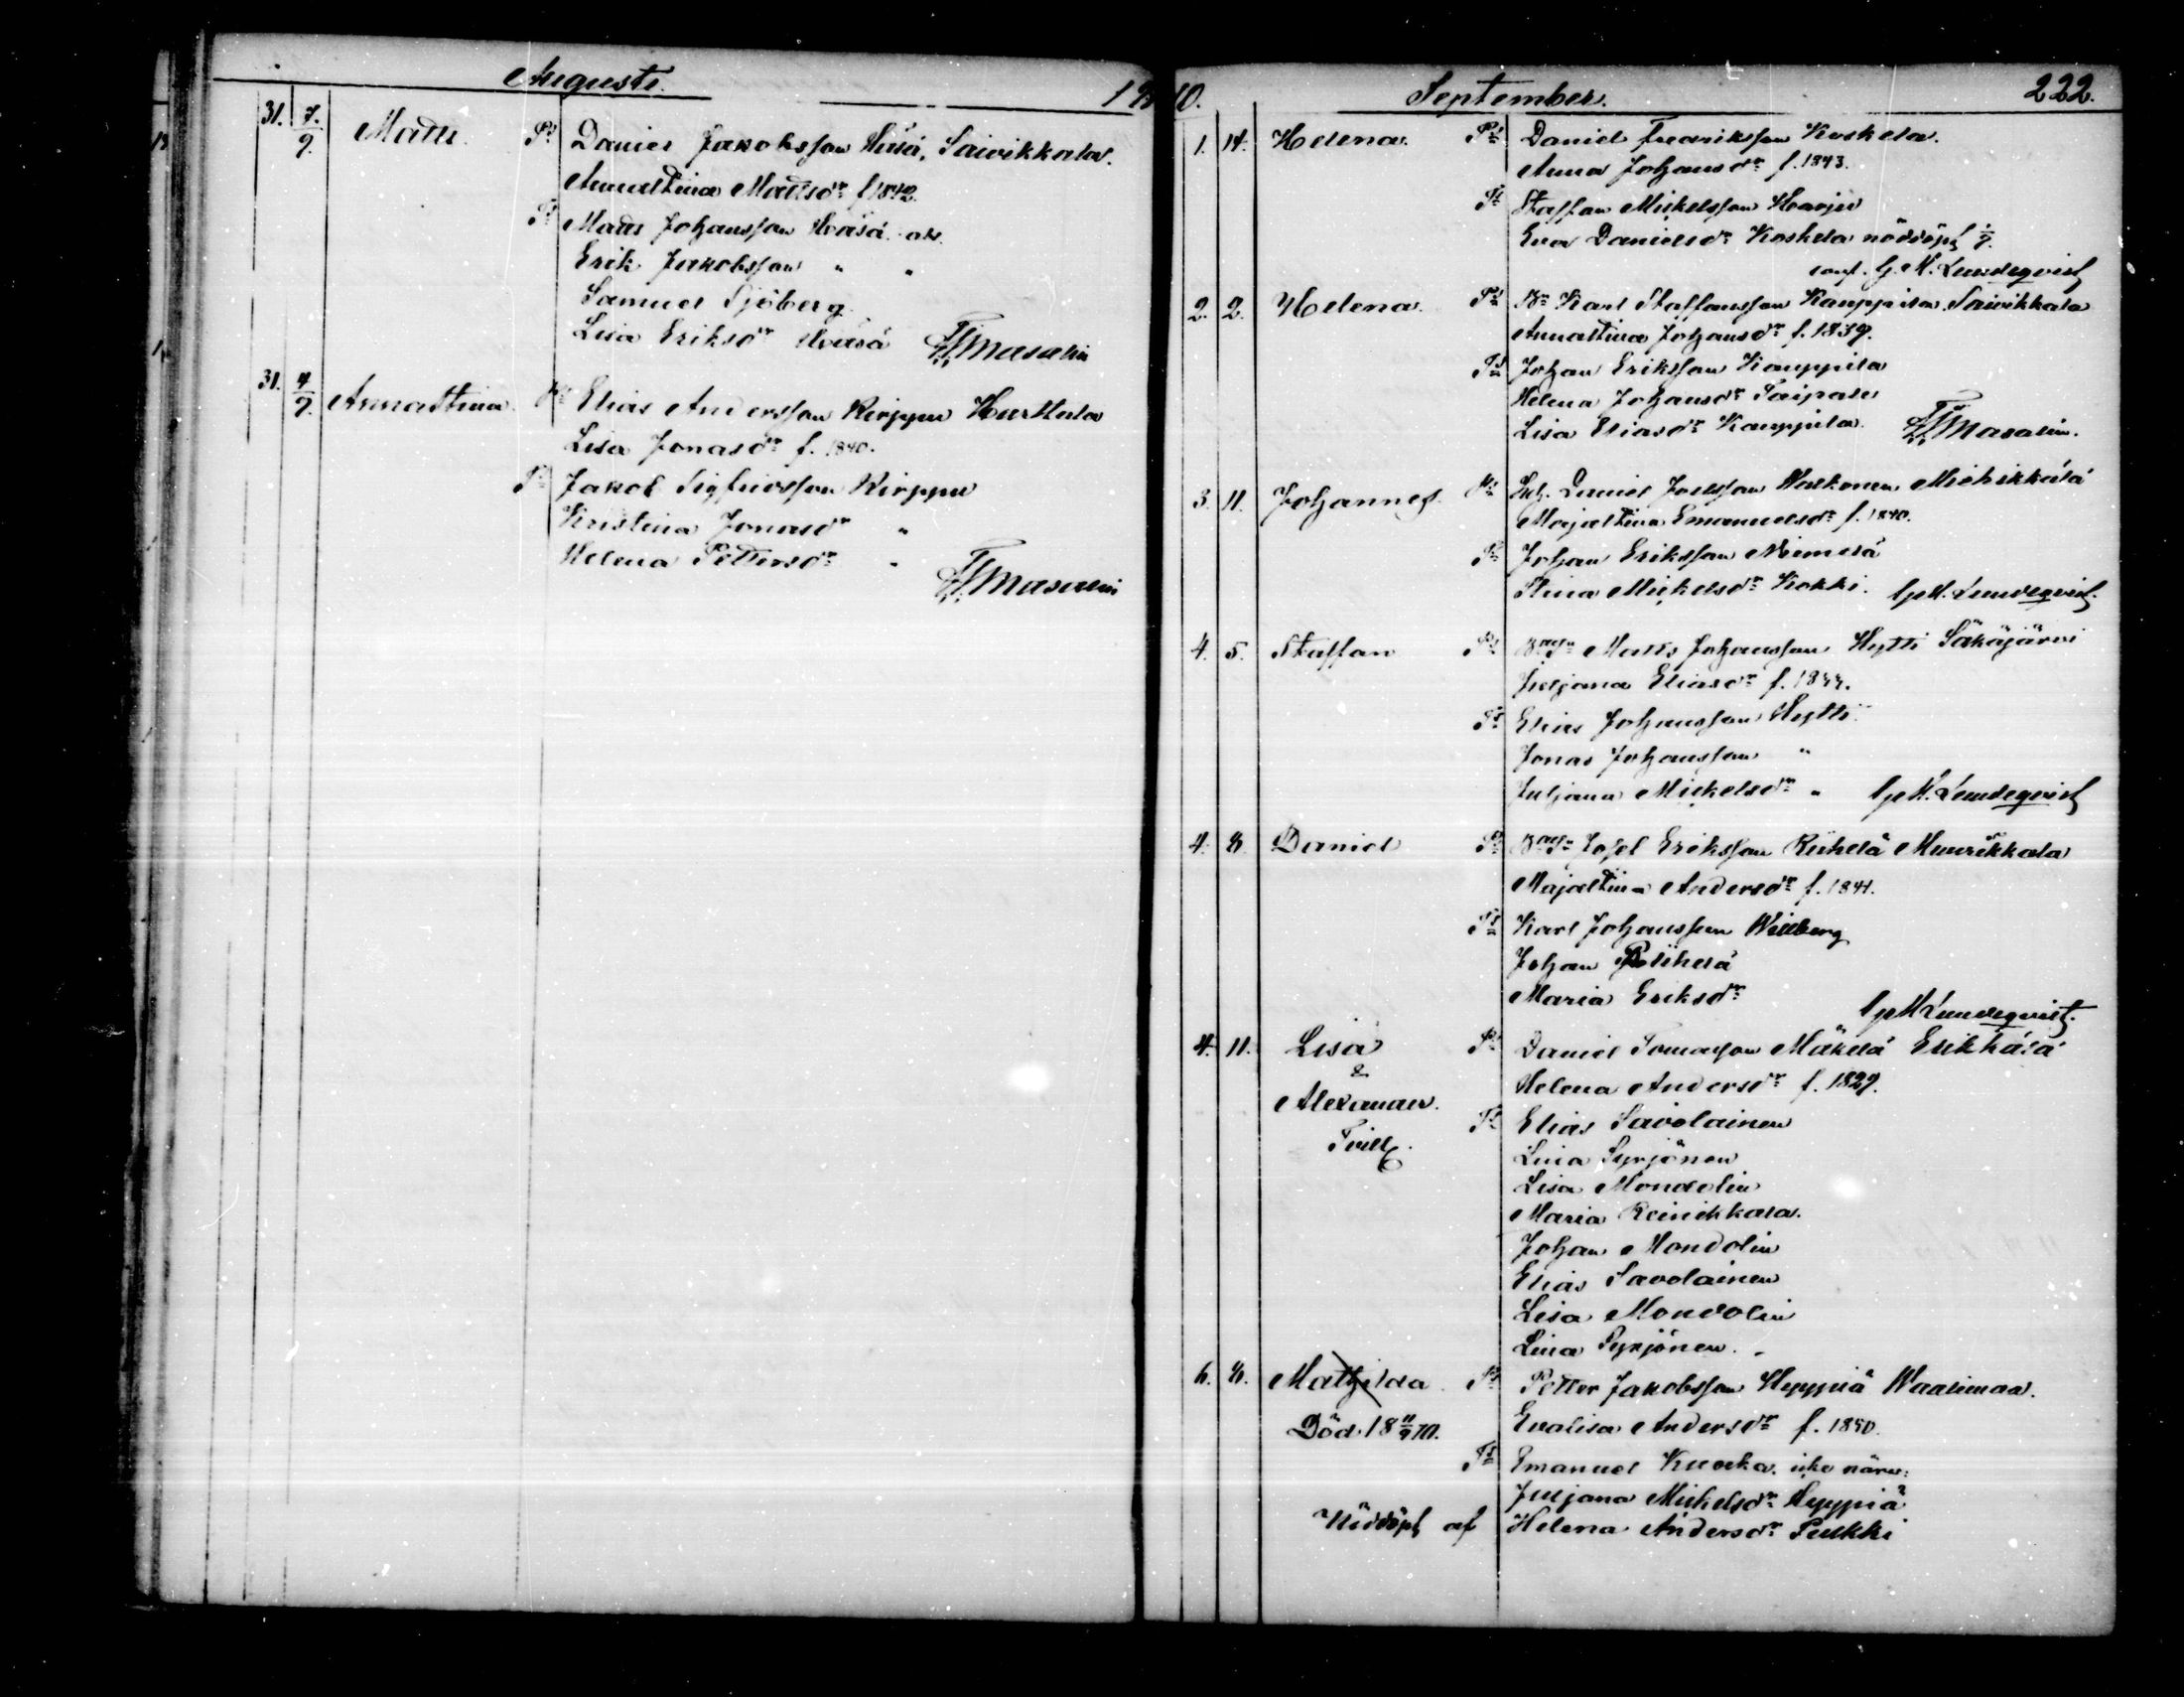 Augusti. 1870.
31. 7/9. Matts. Pr Daniel Jakobsson Häsä, Saivikkala.
Annastina Mattsdr f 1842.
Tr Matts Johansson Häsä
Erik Jakobsson " "
Samuel Sjöberg
Lisa Eriksdr Häsä Masalin
31. 4/9. Annastina. Pr Elias Andersson Kirppu Hurttala
Lisa Jonasdr f. 1840.
Tr Jakob Sigfridsson Kirppu
Kristina Jonasdr "
Helena Pettersdr "
Masalin
September. 222.
1. 14. Helena. Pr Daniel Fredriksson Koskela.
Anna Johansdr f. 1843.
Tr Staffan Mickelsson Harju
Eva Danielsdr Koskela nöddöpt 1/9.
conf. G. M. Lundeqvist
2. 2. Helena. Pr Bn Karl Staffansson Kauppila Saivikkala
Annastina Johansdr f. 1839.
Tr Johan Eriksson Kauppila
Helena Johansdr Taipale
Lisa Eliasdr Kauppila. Masalin.
3. 11. Johannes. Pr Daniel Joelsson Miehikkälä
Majastina Emanuelsdr f. 1840.
Tr Johan Eriksson Niemelä
Stina Mickelsdr Kokki. G. M. Lundeqvist.
4. 5. Staffan Pr Matts Johansson Hytti Säkäjärvi
Juljana Eliasdr f. 1844.
Tr Elias Johansson Hytti.
Jonas Johansson "
Juljana Mickelsdr " G. M. Lundeqvist
4. 8. Daniel Pr Josef Eriksson Riihelä Muurikkala
Majastina Andersdr f. 1841.
Tr Karl Johansson Willberg
Johan Riihelä
Maria Eriksdr
G M Lundeqvist.
4. 11. Lisa Pr Daniel Tomasson Mäkelä Erikkälä
& Helena Andersdr f. 1829.
Alexander. Tr Elias Savolainen
Tvill. Lisa Syrjönen
Lisa Mondolin
Maria Reinikkala.
Johan Mondolin
Elias Savolainen
Lisa Mondolin
Lisa Syrjönen.
6. 8. Mathilda. Pr Petter Jakobsson Hyypiä Waalimaa.
Död 18 11/9 70. Evalisa Andersdr f. 1850.
Tr Emanuel Kuokka. icke närv:
Juljana Mickelsdr Hyypiä
Nöddöpt af Helena Andersdr Pulkki